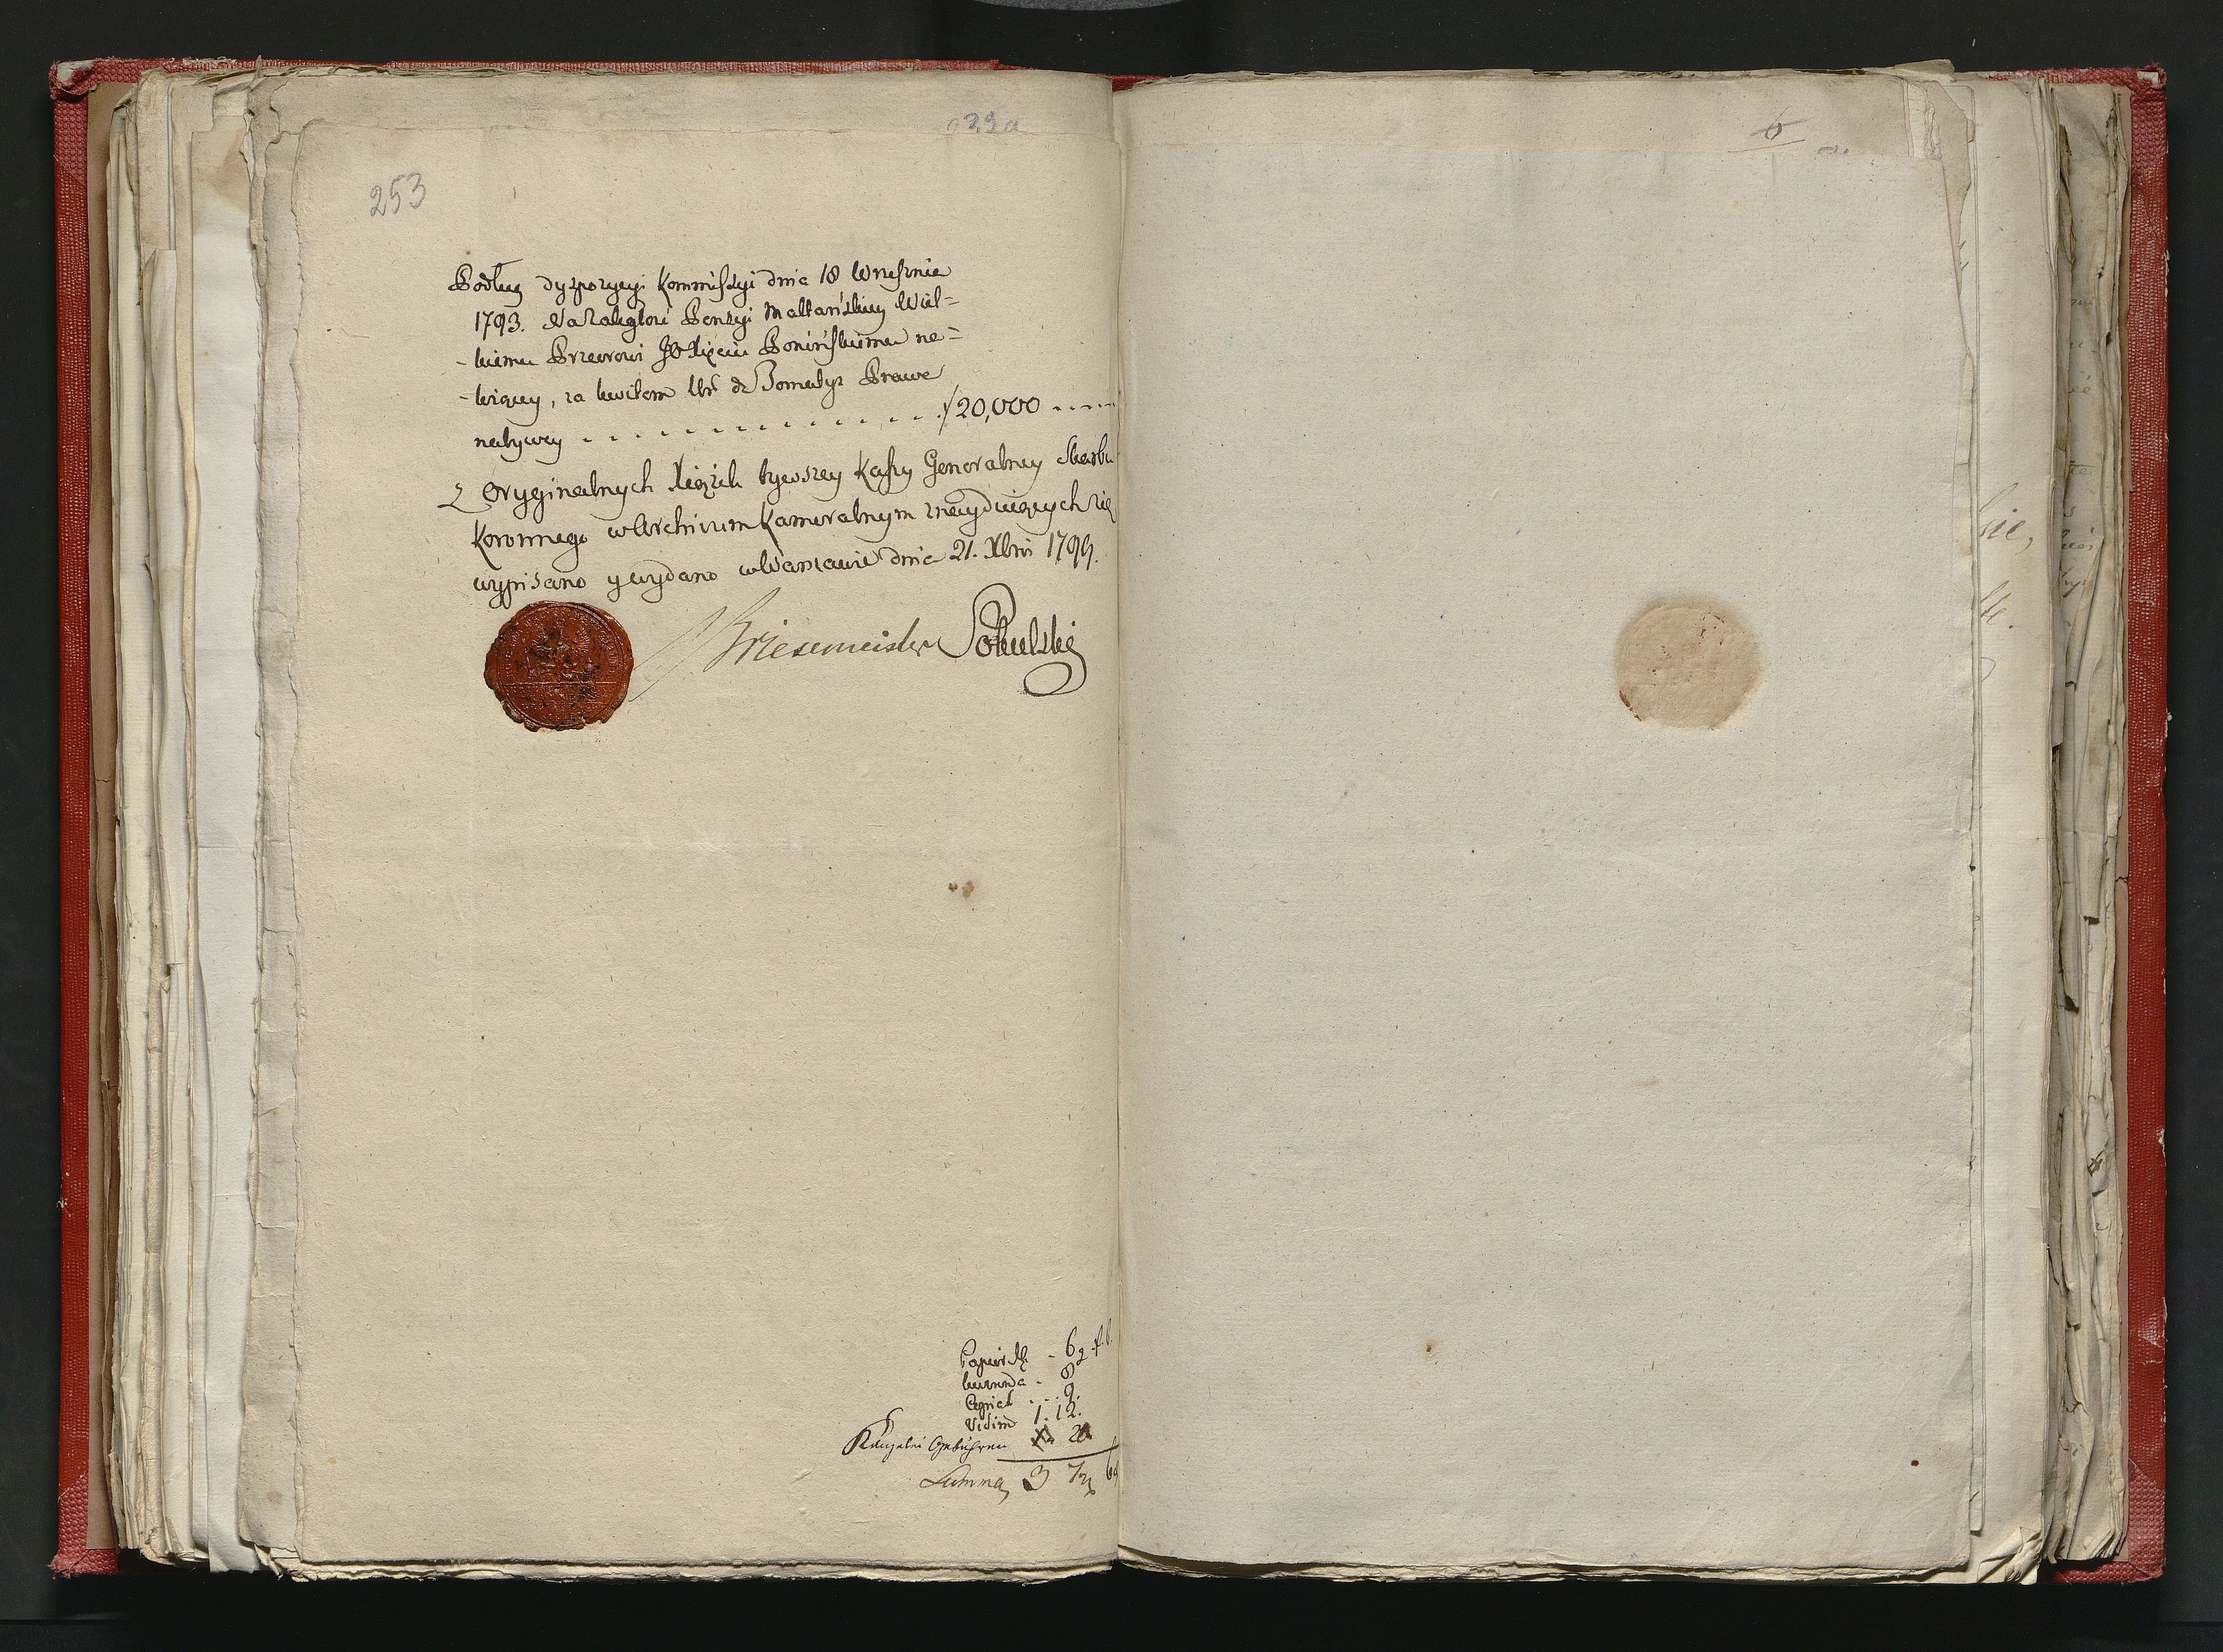 253
Podług dyspozycyi Kommissyi dnia 18 Wrzesnia
1793. Na Zaległosć Pensyi Maltańskiey Wiel=
-kiemu Przeorowi JO Xięciu Ponińskiemu na=
-leżącey, za kwitem Ur de Tomatys Prawo
nabywcy 20,000
Z Oryginalnych Xiążek bywszey Kassy Generalney Skarbu
Koronnego w Archivum Kameralnym znayduiących się
wypisano y wydano w Warszawie dnia 21. Xbris 1799.
Briesemeister Sokulski
Papier
Copial
Vidim 1. 12.
Kanzelei Gebühren
Summa 3
6